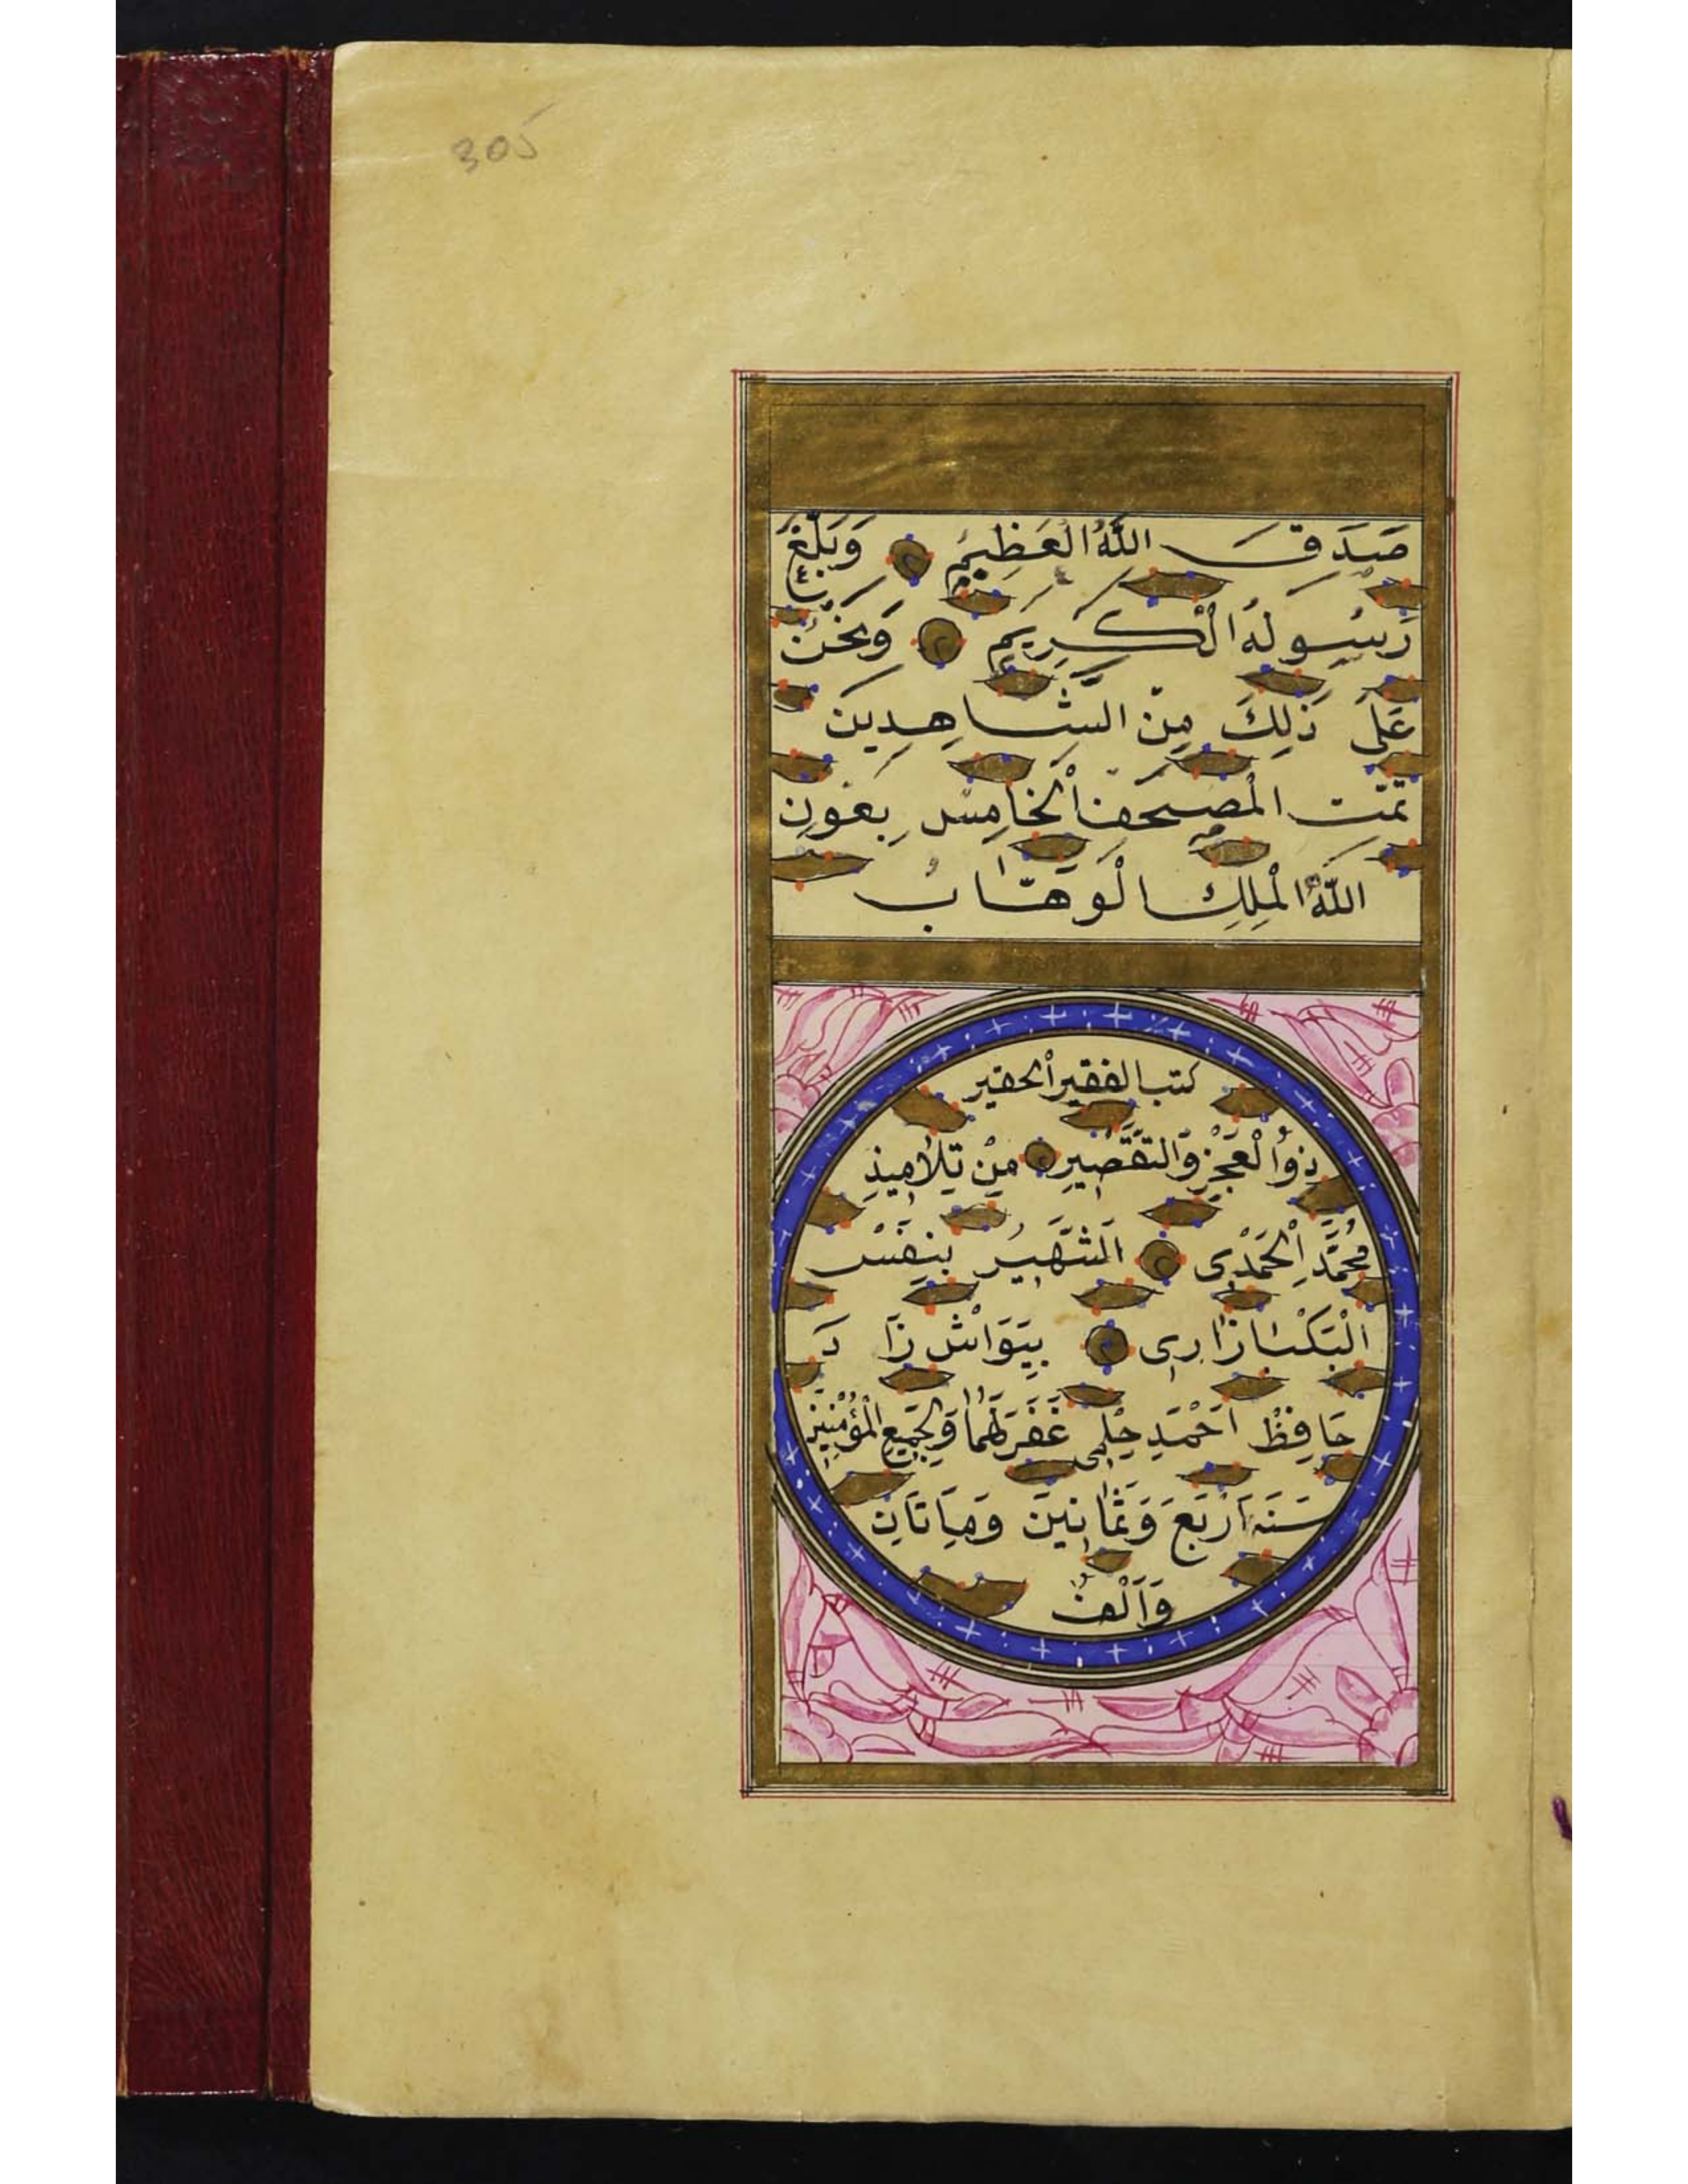 305
صَدَقَ اللّٰهُ الْعَظِيمُ وَبَلَّغَ
رَسُولُهُ الْكَرِيمُ وَنَحْنُ
عَلَى ذٰلِكَ مِنَ الشَّاهِدِينَ
تَمَّتِ الْمُصْحَفُ الْخَامِسُ بِعَوْنِ
اللّٰهِ الْمَلِكِ الْوَهَّابُ
كتب الفقير الحقير
ذُو الْعَجْزِ وَالتَّقْصِيرِ مِنْ تَلَامِيذِ
مُحَمَّدِ الْحَمْدِى الشَّهِيرُ بِنِفَسْ
الْبَكْبَازَارِى بِيَوَاشْ زَا دَ
حَافِظْ اَحْمَدِ حِلْمِى غَفَرَ لَهُمَا وَلِجَمِيعِ الْمُؤْمِنِينَ
سَنَه اَرْبَعَ وَثَمَانِينَ وَمِاَتَانِ
وَاَلْفُ